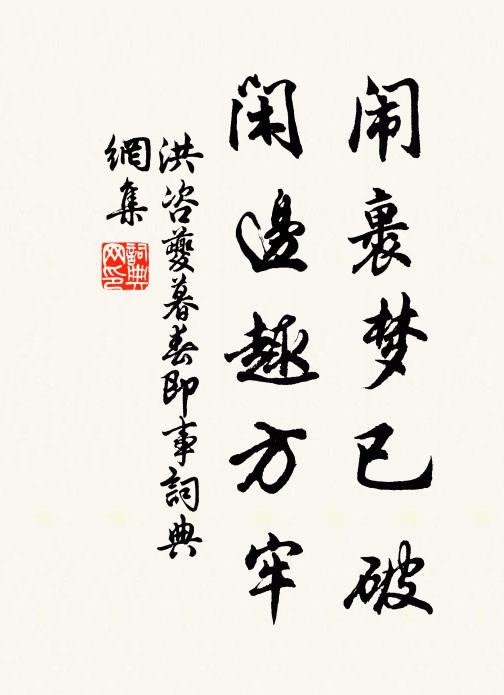 闹裹梦已破
闲邊趣方牢
洪咨夔暮春即事詞典
網集
詞典
网印